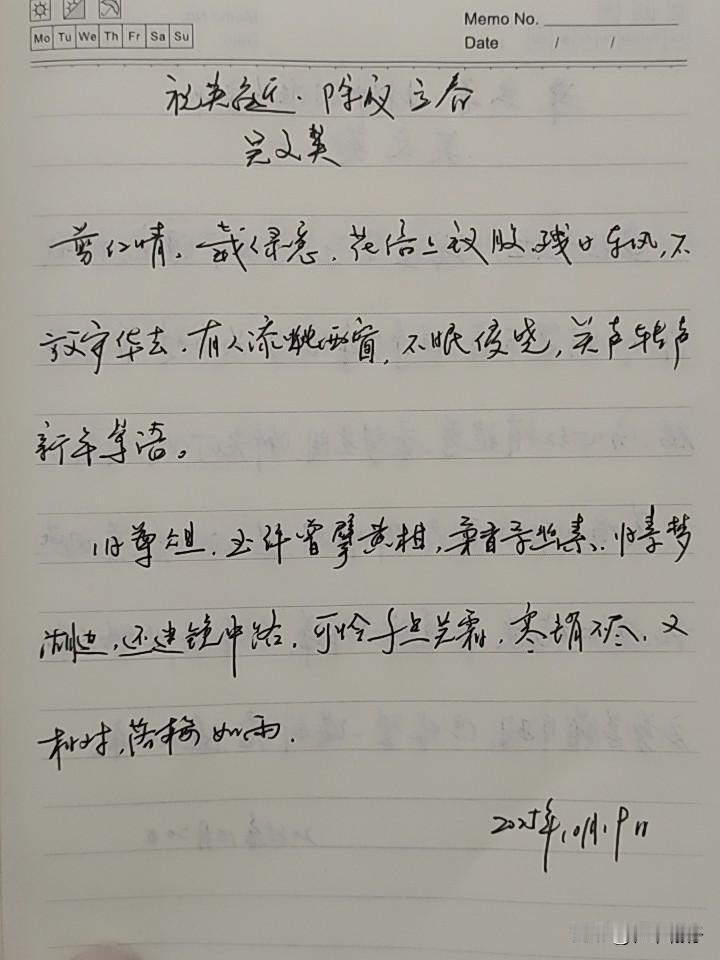 Memo No.
Mo Tu We Th Fr Sa Su
Date / /
祝英台近·除夜立春
吴文英
剪红情,裁绿意,花信上钗股,残日东风,不
放岁华去,有人添烛西窗,不眠侵晓,笑声转
新年莺语。
旧尊俎,玉纤曾擘黄柑,柔香系幽素,归梦
湖边,还迷镜中路,可怜千点吴霜,寒销不尽,又
相对,落梅如雨.
2025年10月19日